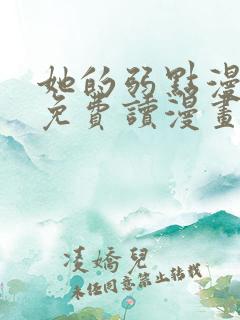 她的弱點漫
免費讀漫畫
凌嬌兒
未经同意禁止转载